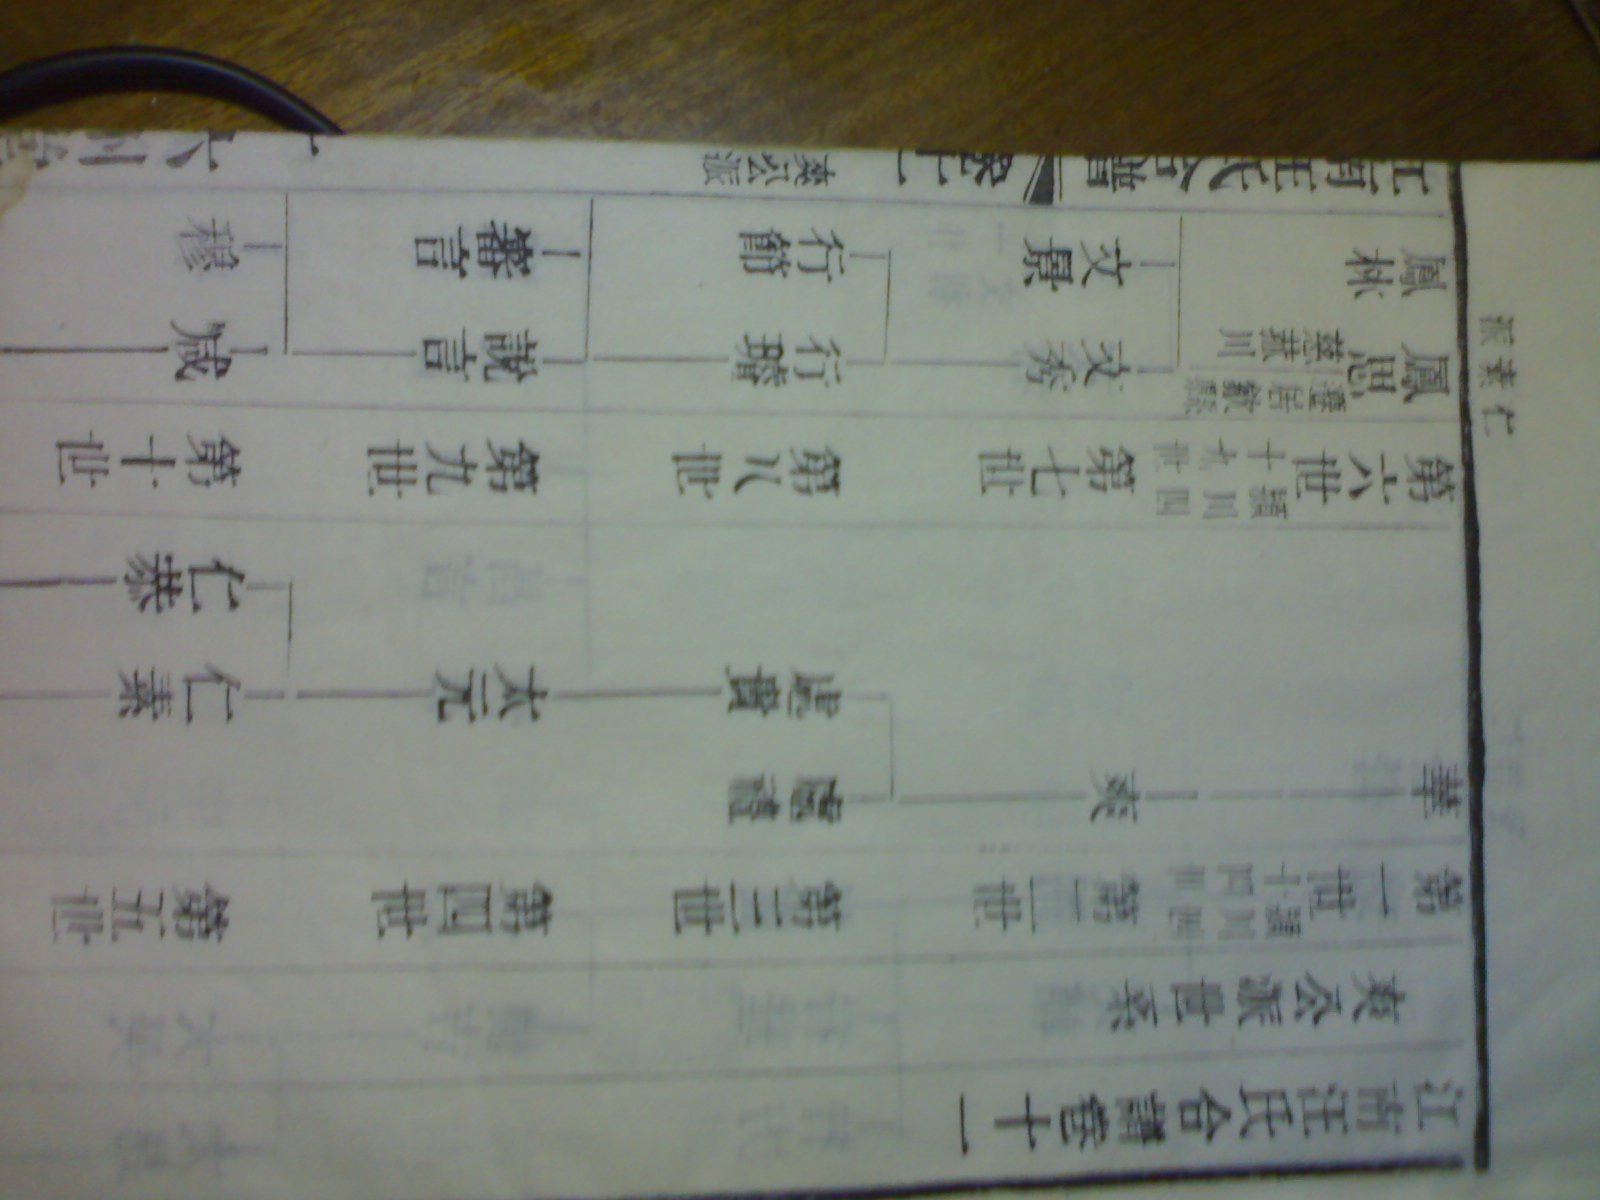 江南汪氏合譜卷十一
爽公派世系
第一世
潁川四
十四世
第二世
第三世
第四世
第五世
華
爽
太元
仁素
仁恭
第六世
潁川四
十九世
第七世
第八世
第九世
第十世
鳳思
遷居歙縣
慈菰川
文秀
說言
鳳林
文景
行節
審言
穆
江南汪氏合譜
卷十一
爽公派
仁素派